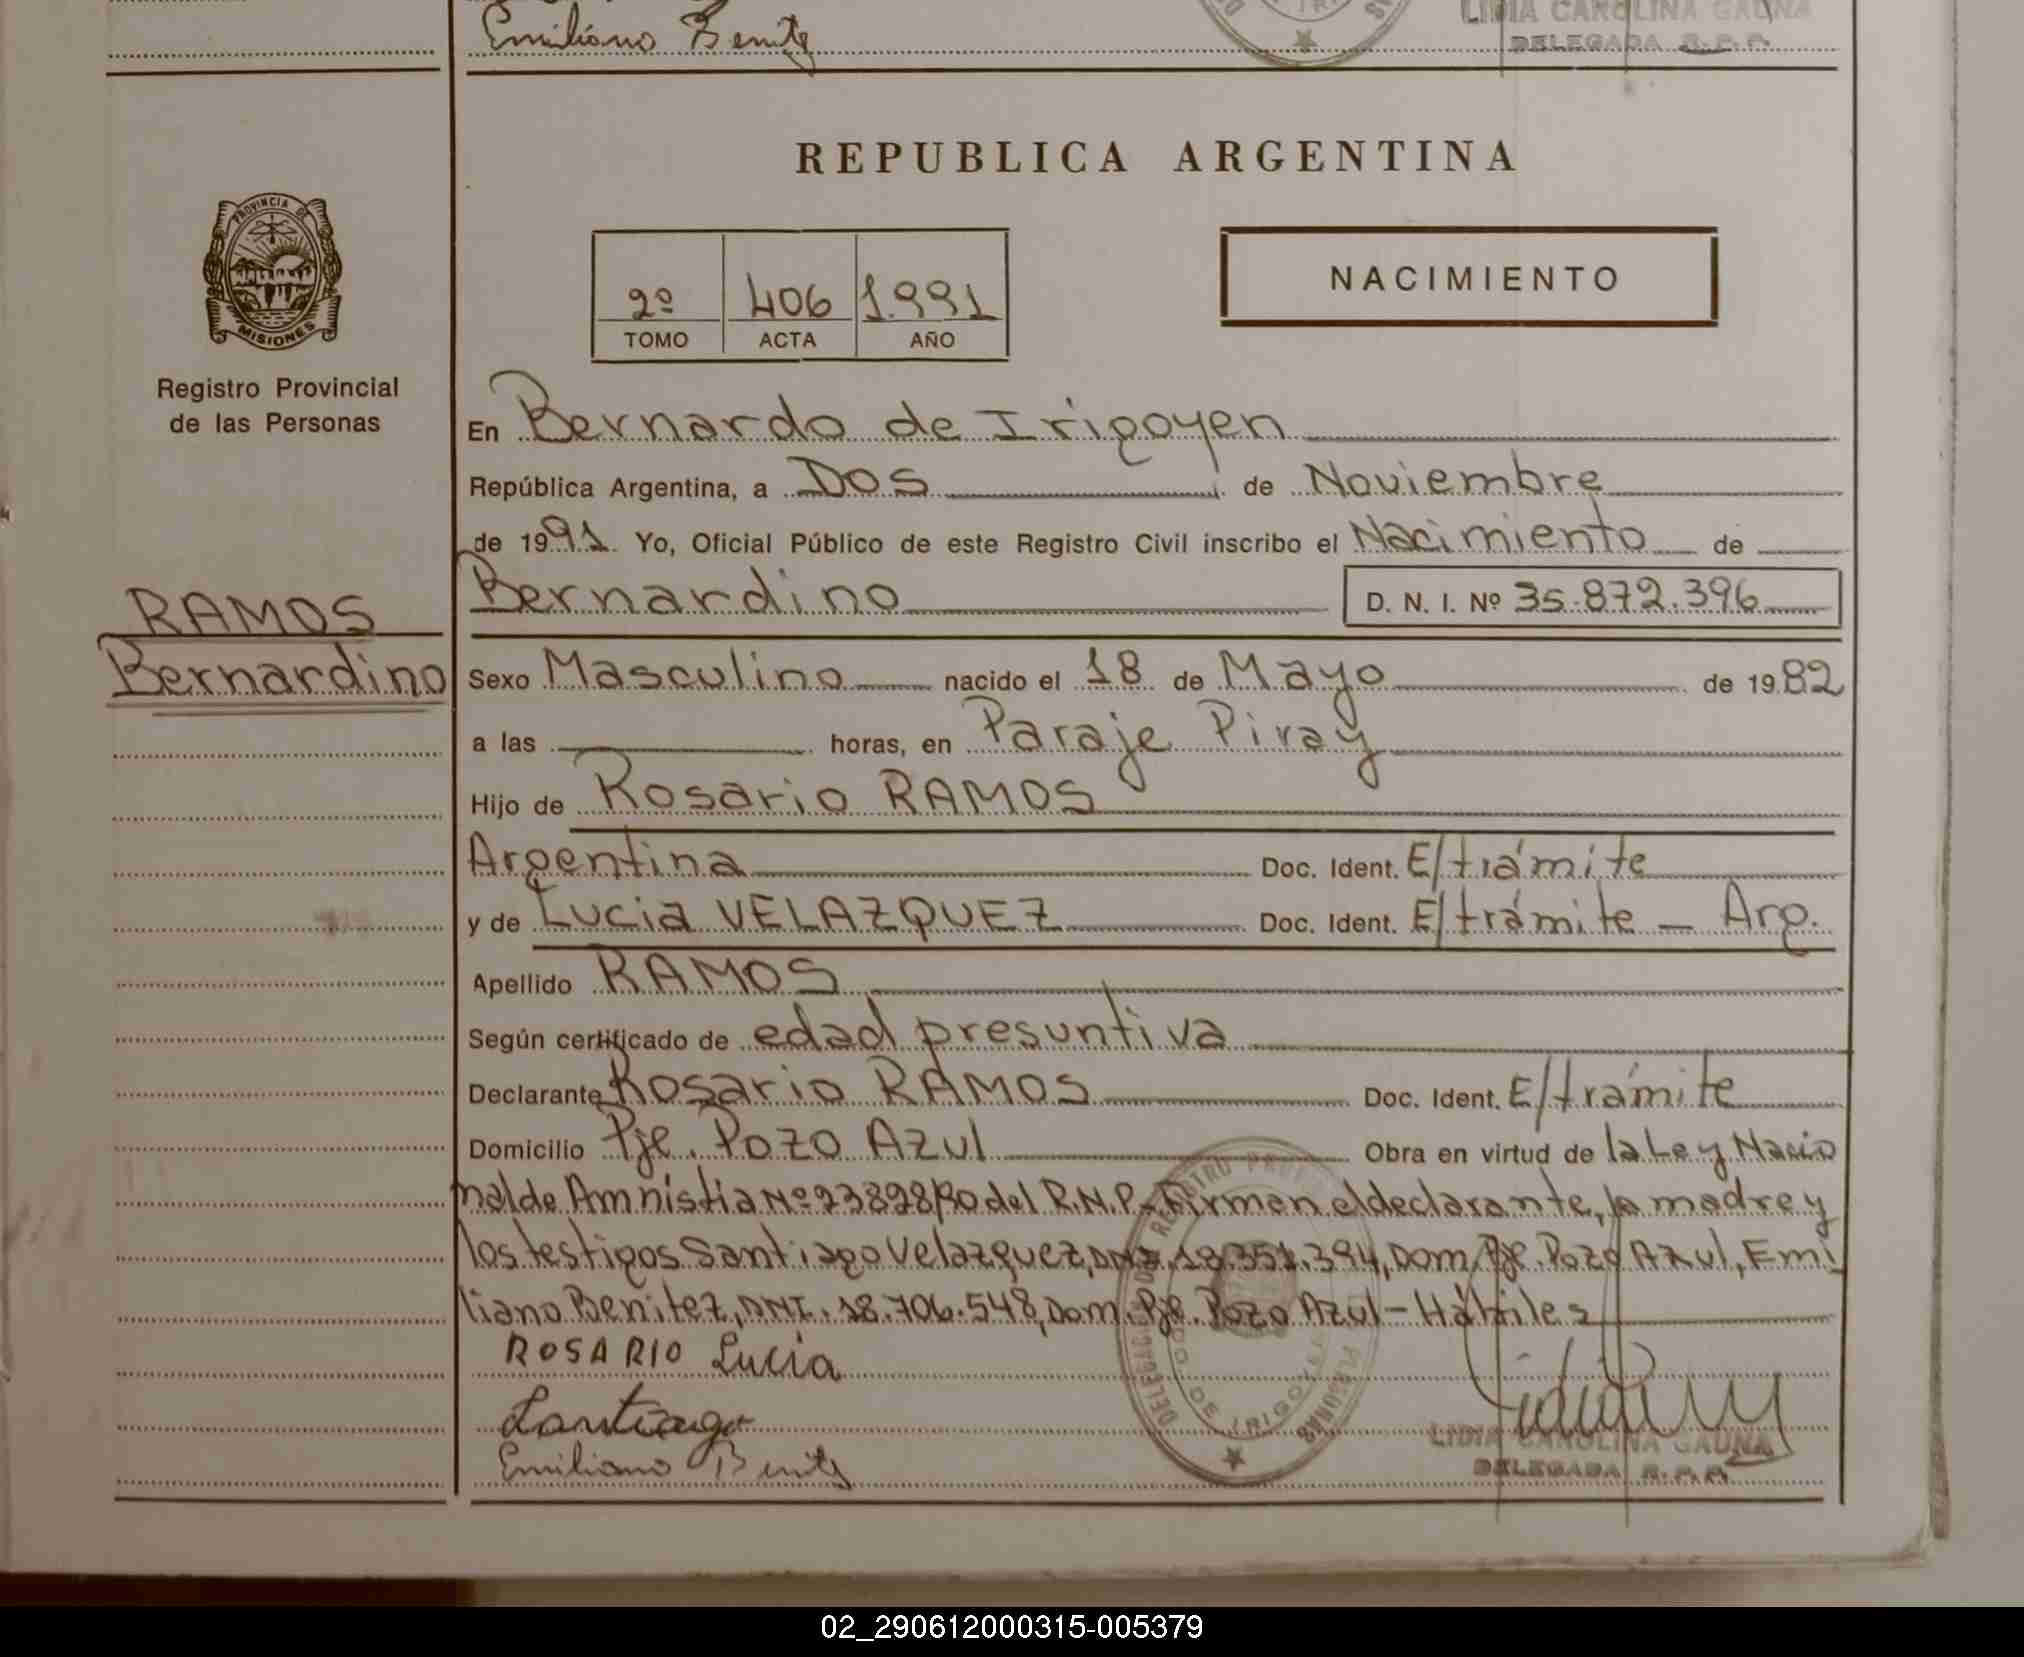 Emiliano Benitez
LIDIA CAROLINA GAUNA
DELEGADA R.P.P.
REPUBLICA ARGENTINA
PROVINCIA DE
MISIONES
Registro Provincial
de las Personas
2º 406 1.991
TOMO ACTA AÑO
NACIMIENTO
En Bernardo de Irigoyen
República Argentina, a Dos de Noviembre
de 1991. Yo, Oficial Público de este Registro Civil inscribo el Nacimiento de
Bernardino D. N. I. Nº 35.872.396
RAMOS
Bernardino
Sexo Masculino nacido el 18 de Mayo de 1982
a las horas, en Paraje Piray
Hijo de Rosario RAMOS
Argentina Doc. Ident. E/trámite
y de Lucia VELAZQUEZ Doc. Ident. E/trámite - Arg.
Apellido RAMOS
Según certificado de edad presuntiva
Declarante Rosario RAMOS Doc. Ident. E/trámite
Domicilio Pje. Pozo Azul Obra en virtud de la Ley Nacio
nal de Amnistia Nº 23828/90 del R.N.P. Firman el declarante, la madre y
los testigos Santiago Velazquez, DNI. 18.351.394, Dom. Pje. Pozo Azul, Emi
liano Benitez, DNI. 18.706.548, Dom. Pje. Pozo Azul - Hábiles
ROSARIO Lucia
Santiago
Emiliano Benitez
DE IRIGOYEN
LIDIA CAROLINA GAUNA
DELEGADA R.P.P.
02_290612000315-005379